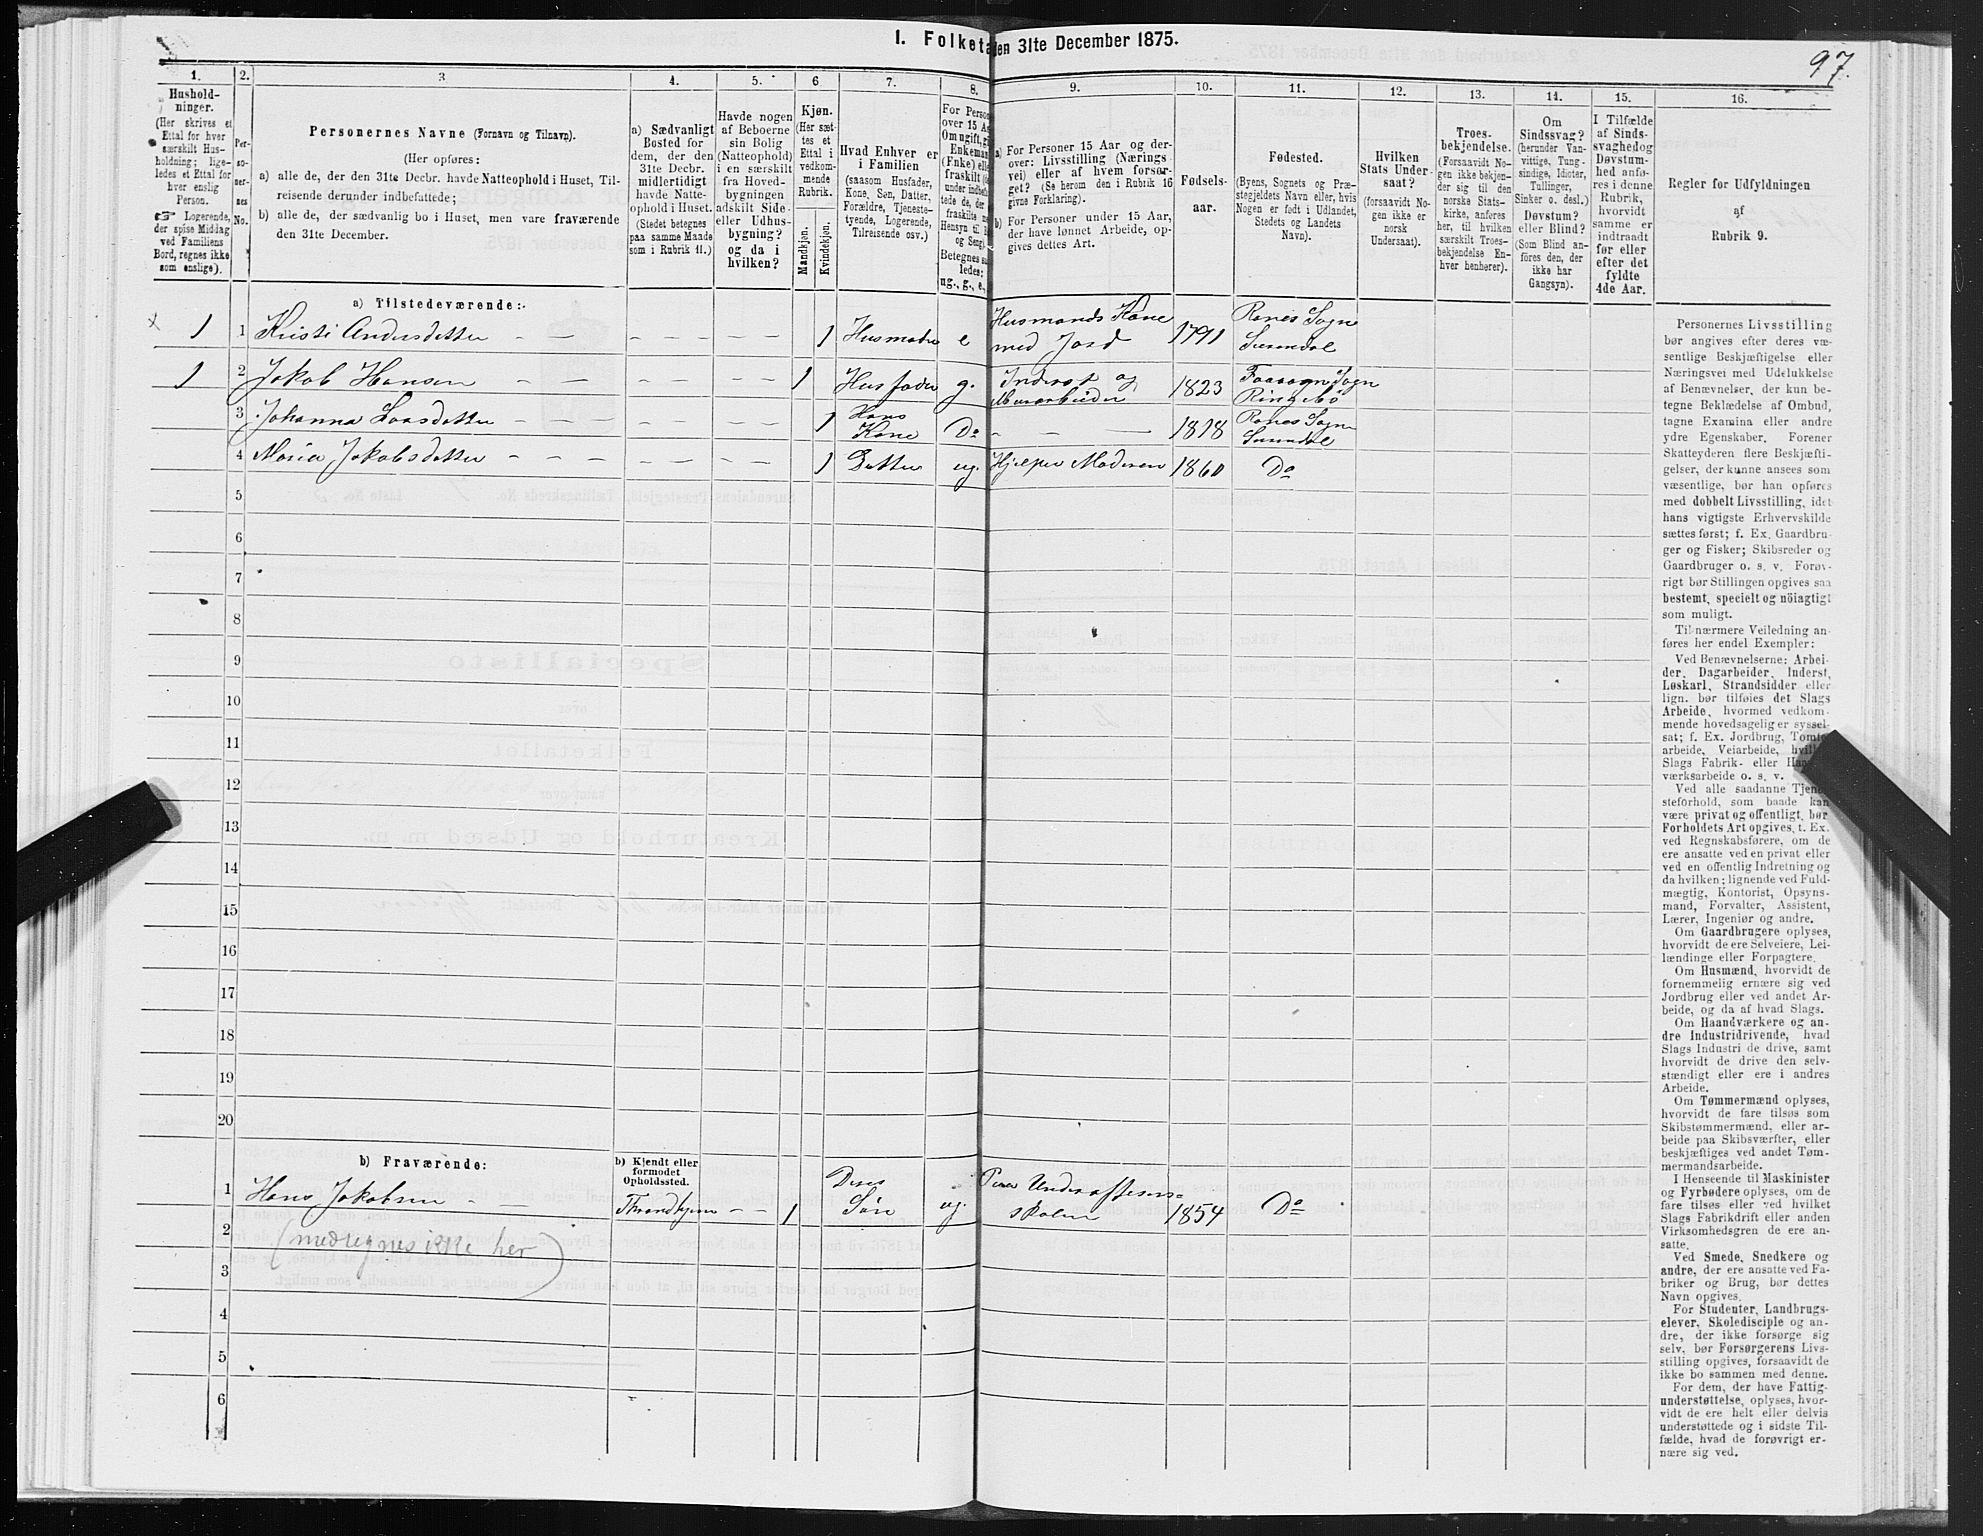 I. Folketa
den 31te December 1875.
97.
1.
2.
3
4.
5.
6
7.
8.
9.
10.
11.
12.
13.
14.
15.
16.
Hushold-
ninger.
(Her skrives et
Ettal for hver
særskilt Hus-
holdning; lige-
ledes et Ettal for
hver enslig
Person.
☞ Logerende,
der spise Middag
ved Familiens
Bord, regnes ikke
som enslige).
Per-
so-
ner-
nes
No.
Personernes Navne (Fornavn og Tilnavn).
(Her opføres:
a) alle de, der den 31te Decbr. havde Natteophold i Huset, Til-
reisende derunder indbefattede;
b) alle de, der sædvanlig bo i Huset, men vare fraværende
den 31te December.
a) Sædvanligt
Bosted for
dem, der den
31te Decbr.
midlertidigt
havde Natte-
ophold i Huset.
(Stedet betegnes
paa samme Maade
som i Rubrik 11.)
Havde nogen
af Beboerne
sin Bolig
(Natteophold)
i en særskilt
fra Hoved-
bygningen
adskilt Side-
eller Udhus-
bygning?
og da i
hvilken?
Kjøn.
(Her sæt-
tes et
Ettal i
vedkom-
mende
Rubrik.
Mandkjøn.
Kvindekjøn.
Hvad Enhver er
i Familien
(saasom Husfader,
Kone, Søn, Datter,
Forældre, Tjeneste-
tyende, Logerende,
Tilreisende osv.)
For Perso
over 15 A
Om ugift, gi
Enkeman
(Enke) elle
fraskilt
under indbef
tede de, der
fraskilte
Hensyn til
og Seng)
Betegnes
ledes:
ug., g., e.,
a) For Personer 15 Aar og der-
over: Livsstilling (Nærings-
vei) eller af hvem forsør-
get? (Se herom den i Rubrik 16
givne Forklaring).
b) For Personer under 15 Aar,
der have lønnet Arbeide, op-
gives dettes Art.
Fødsels-
aar.
Fødested.
(Byens, Sognets og Præ-
stegjeldets Navn eller, hvis
Nogen er født i Udlandet,
Stedets og Landets
Navn).
Hvilken
Stats Under-
saat?
(forsaavidt No-
gen ikke er
norsk
Undersaat).
Troes-
bekjendelse.
(Forsaavidt No-
gen ikke bekjen-
der sig til den
norske Stats-
kirke, anføres
her, til hvilken
særskilt Troes-
bekjendelse En-
hver henhører).
Om
Sindssvag?
(herunder Van-
vittige, Tung-
sindige, Idioter,
Tullinger,
Sinker o. desl.)
Døvstum?
eller Blind?
(Som Blind an-
føres den, der
ikke har
Gangsyn).
I Tilfælde
af Sinds-
svaghed og
Døvstum-
hed anfø-
res i denne
Rubrik,
hvorvidt
samme er
indtraadt
før eller
efter det
fyldte
4de Aar.
Regler for Udfyldningen
af
Rubrik 9.
a) Tilstedeværende:
1 1 Kristi Andersdatter 1 Husmoder e Husmands Kone med Jord 1791 Ranes Sogn Surendal
1 2 Jakob Hansen 1 Husfader g. Inderst og Murarbeider 1823 Sogn
3 Johanna Larsdatter 1 Hans Kone Do 1818 Ranes Sogn Surendal
4 Maria Jakobsdatter 1 Datter ug. Hjelper Moderen 1860 Do
5
6
7
8
9
10
11
12
13
14
15
16
17
18
19
20
b) Fraværende:
b) Kjendt eller
formodet
Opholdssted.
1 Hans Jakobsen Throndhjem 1 Deres Søn ug. Underofficers= skolen 1854 Do
2 (medregnes ikke her)
3
4
5
6
Personernes Livsstilling
bør angives efter deres væ-
sentlige Beskjæftigelse eller
Næringsvei med Udelukkelse
af Benævnelser, der kun be-
tegne Beklædelse af Ombud,
tagne Examina eller andre
ydre Egenskaber. Forener
Skatteyderen flere Beskjæfti-
gelser, der kunne ansees som
væsentlige, bør han opføres
med dobbelt Livsstilling, idet
hans vigtigste Erhvervskilde
sættes først; f. Ex. Gaardbru-
ger og Fisker; Skibsreder og
Gaardbruger o. s. v. Forøv-
rigt bør Stillingen opgives saa
bestemt, specielt og nöiagtigt
som muligt.
Til nærmere Veiledning an-
føres her endel Exempler:
Ved Benævnelserne: Arbei-
der, Dagarbeider, Inderst,
Løskarl, Strandsidder eller
lign. bør tilføies det Slags
Arbeide, hvormed vedkom-
mende hovedsagelig er syssel-
sat; f. Ex. Jordbrug, Tomte-
arbeide, Veiarbeide, hvilket
Slags Fabrik- eller Haand-
værksarbeide o. s. v.
Ved alle saadanne Tjene-
steforhold, som baade kan
være privat og offentligt, bør
Forholdets Art opgives, t. Ex.
ved Regnskabsførere, om de
ere ansatte ved en privat eller
ved en offentlig Indretning og
da hvilken; lignende ved Fuld-
mægtig, Kontorist, Opsyns-
mand, Forvalter, Assistent,
Lærer, Ingeniør og andre.
Om Gaardbrugere oplyses,
hvorvidt de ere Selveiere, Lei-
lændinge eller Forpagtere.
Om Husmænd, hvorvidt de
fornemmelig ernære sig ved
Jordbrug eller ved andet Ar-
beide, og da af hvad Slags.
Om Haandværkere og an-
dre Industridrivende, hvad
Slags Industri de drive, samt
hvorvidt de drive den selv-
stændigt eller ere i andres
Arbeide.
Om Tømmermænd oplyses,
hvorvidt de fare tilsøs som
Skibstømmermænd, eller ar-
beide paa Skibsværfter, eller
beskjæftiges ved andet Tøm-
mermandsarbeide.
I Henseende til Maskinister
og Fyrbødere oplyses, om de
fare tilsøs eller ved hvilket
Slags Fabrikdrift eller anden
Virksomhedsgren de ere an-
satte.
Ved Smede, Snedkere og
andre, der ere ansatte ved Fa-
briker og Brug, bør dettes
Navn opgives.
For Studenter, Landbrugs-
elever, Skoledisciple og an-
dre, der ikke forsørge sig
selv, bør Forsørgerens Livs-
stilling opgives, forsaavidt de
ikke bo sammen med denne.
For dem, der have Fattig-
understøttelse, oplyses, hvor-
vidt de ere helt eller delvis
understøttede og i sidste Til-
fælde, hvad de forøvrigt er-
nære sig ved.